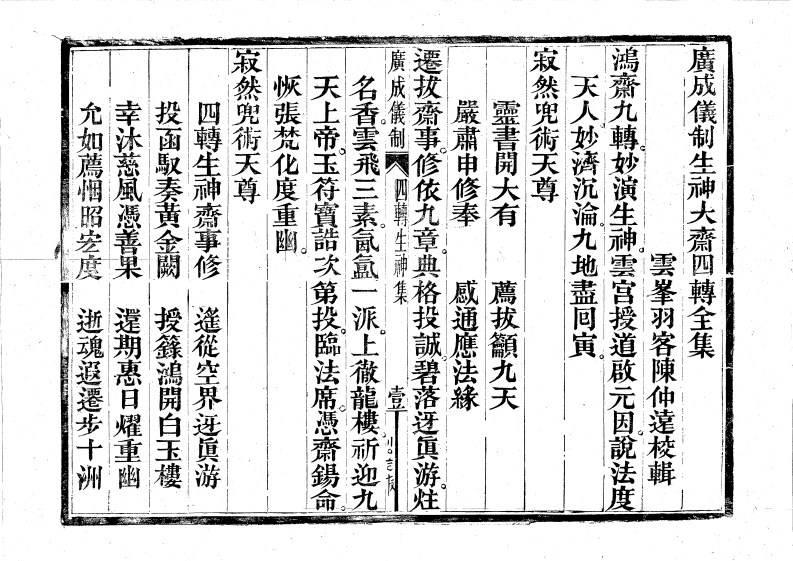 廣成儀制生神大齋四轉全集
雲峯羽客陳仲遠校輯
鴻齋九轉妙演生神雲宮授道啟元因說法度
天人妙濟沉淪九地盡回寅
寂然兜術天尊
靈書開大有　薦拔籲九天
嚴肅申修奉　感通應法緣
遷拔齋事修依九章典格投誠碧落迓眞游炷
廣成儀制　四轉生神集　壹
名香雲飛三素氤氳一派上徹龍樓祈迎九
天上帝玉符寶誥次第投臨法席憑齋錫命
恢張梵化度重幽
寂然兜術天尊
四轉生神齋事修　遙從空界迓眞游
投函馭奏黃金闕　授籙鴻開白玉樓
幸沐慈風憑善果　還期惠日耀重幽
允如薦悃昭宏度　逝魂遐遷步十洲